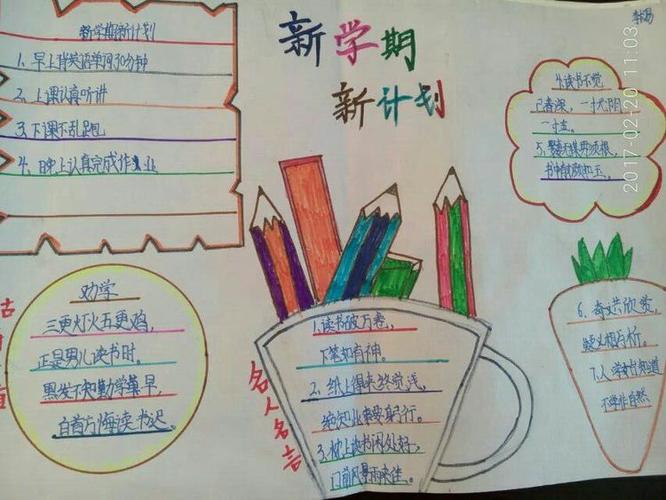 新学期
新计划
新学期新计划
1、早上背英语单词30分钟
2、上课认真听讲
3、下课不乱跑
4、晚上认真完成作业
劝学
三更灯火五更鸡，
正是男儿读书时。
黑发不知勤学早，
白首方悔读书迟。
名人名言
1、读书破万卷，
下笔如有神。
2、纸上得来终觉浅，
绝知此事要躬行。
3、枕上读书闲处好，
门前风景雨来佳。
4、读书不觉
已春深，一寸光阴
一寸金。
5、
书中
6、奇文共欣赏，
疑义相与析。
7、人学始知道
不学非自然
2017-02-20 11:03